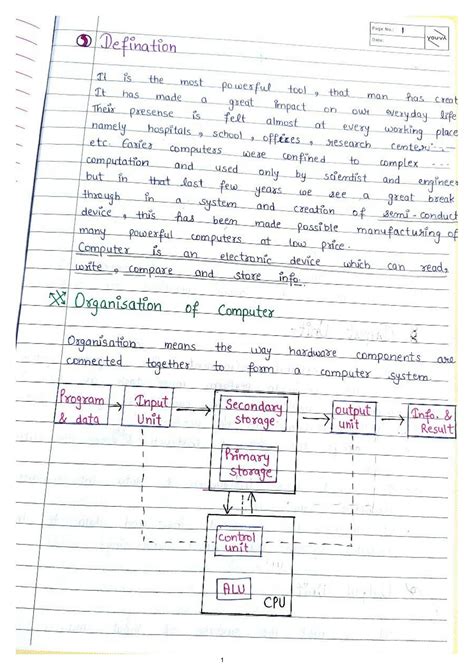 Page No.: 1
Date:
youva
Defination
It is the most powerful tool, that man has creat
It has made a great impact on our everyday life
Their presense is felt almost at every working place
namely hospitals, school, offices, research center ....
etc. Earier computers were confined to complex ....
computation and used only by scientist and engineer
but in that last few years we see a great break
through in a system and creation of semi-conduct
device, this has been made possible manufacturing of
many powerful computers at low price.
Computer is an electronic device which can read,
write, compare and store info.
Organisation of Computer
Organisation means the way hardware components are
connected together to form a computer system.
Program & data
Input Unit
Secondary storage
Primary storage
output unit
Info. & Result
control unit
ALU
CPU
1